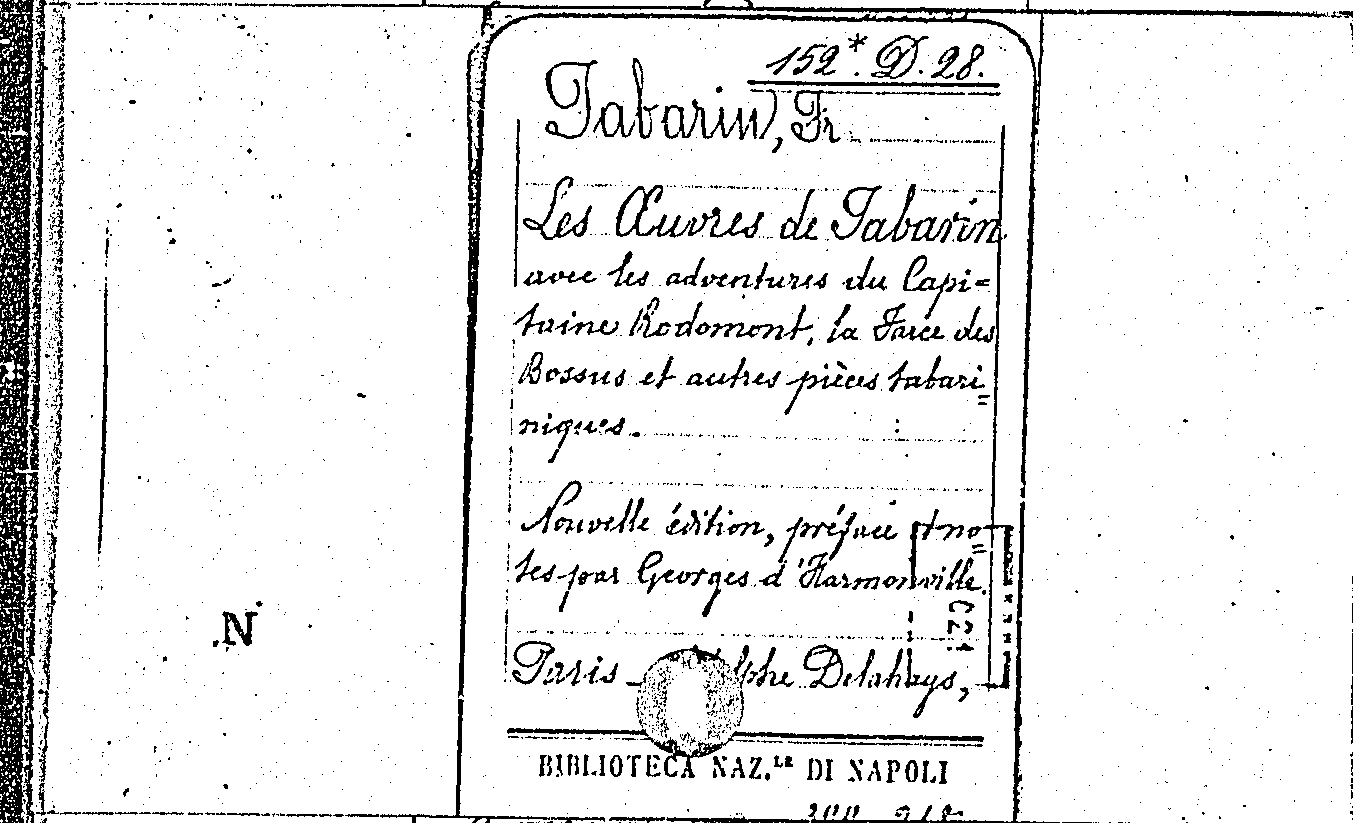 152*. D. 28.
Tabarin, Fr.
Les Œuvres de Tabarin
avec les adventures du Capi=
taine Rodomont, la Farce des
Bossus et autres pièces tabari=
niques.
Nouvelle édition, préface et no=
tes par Georges d'Harmonville.
N
Paris - Delahays,
BIBLIOTECA NAZ.LE DI NAPOLI